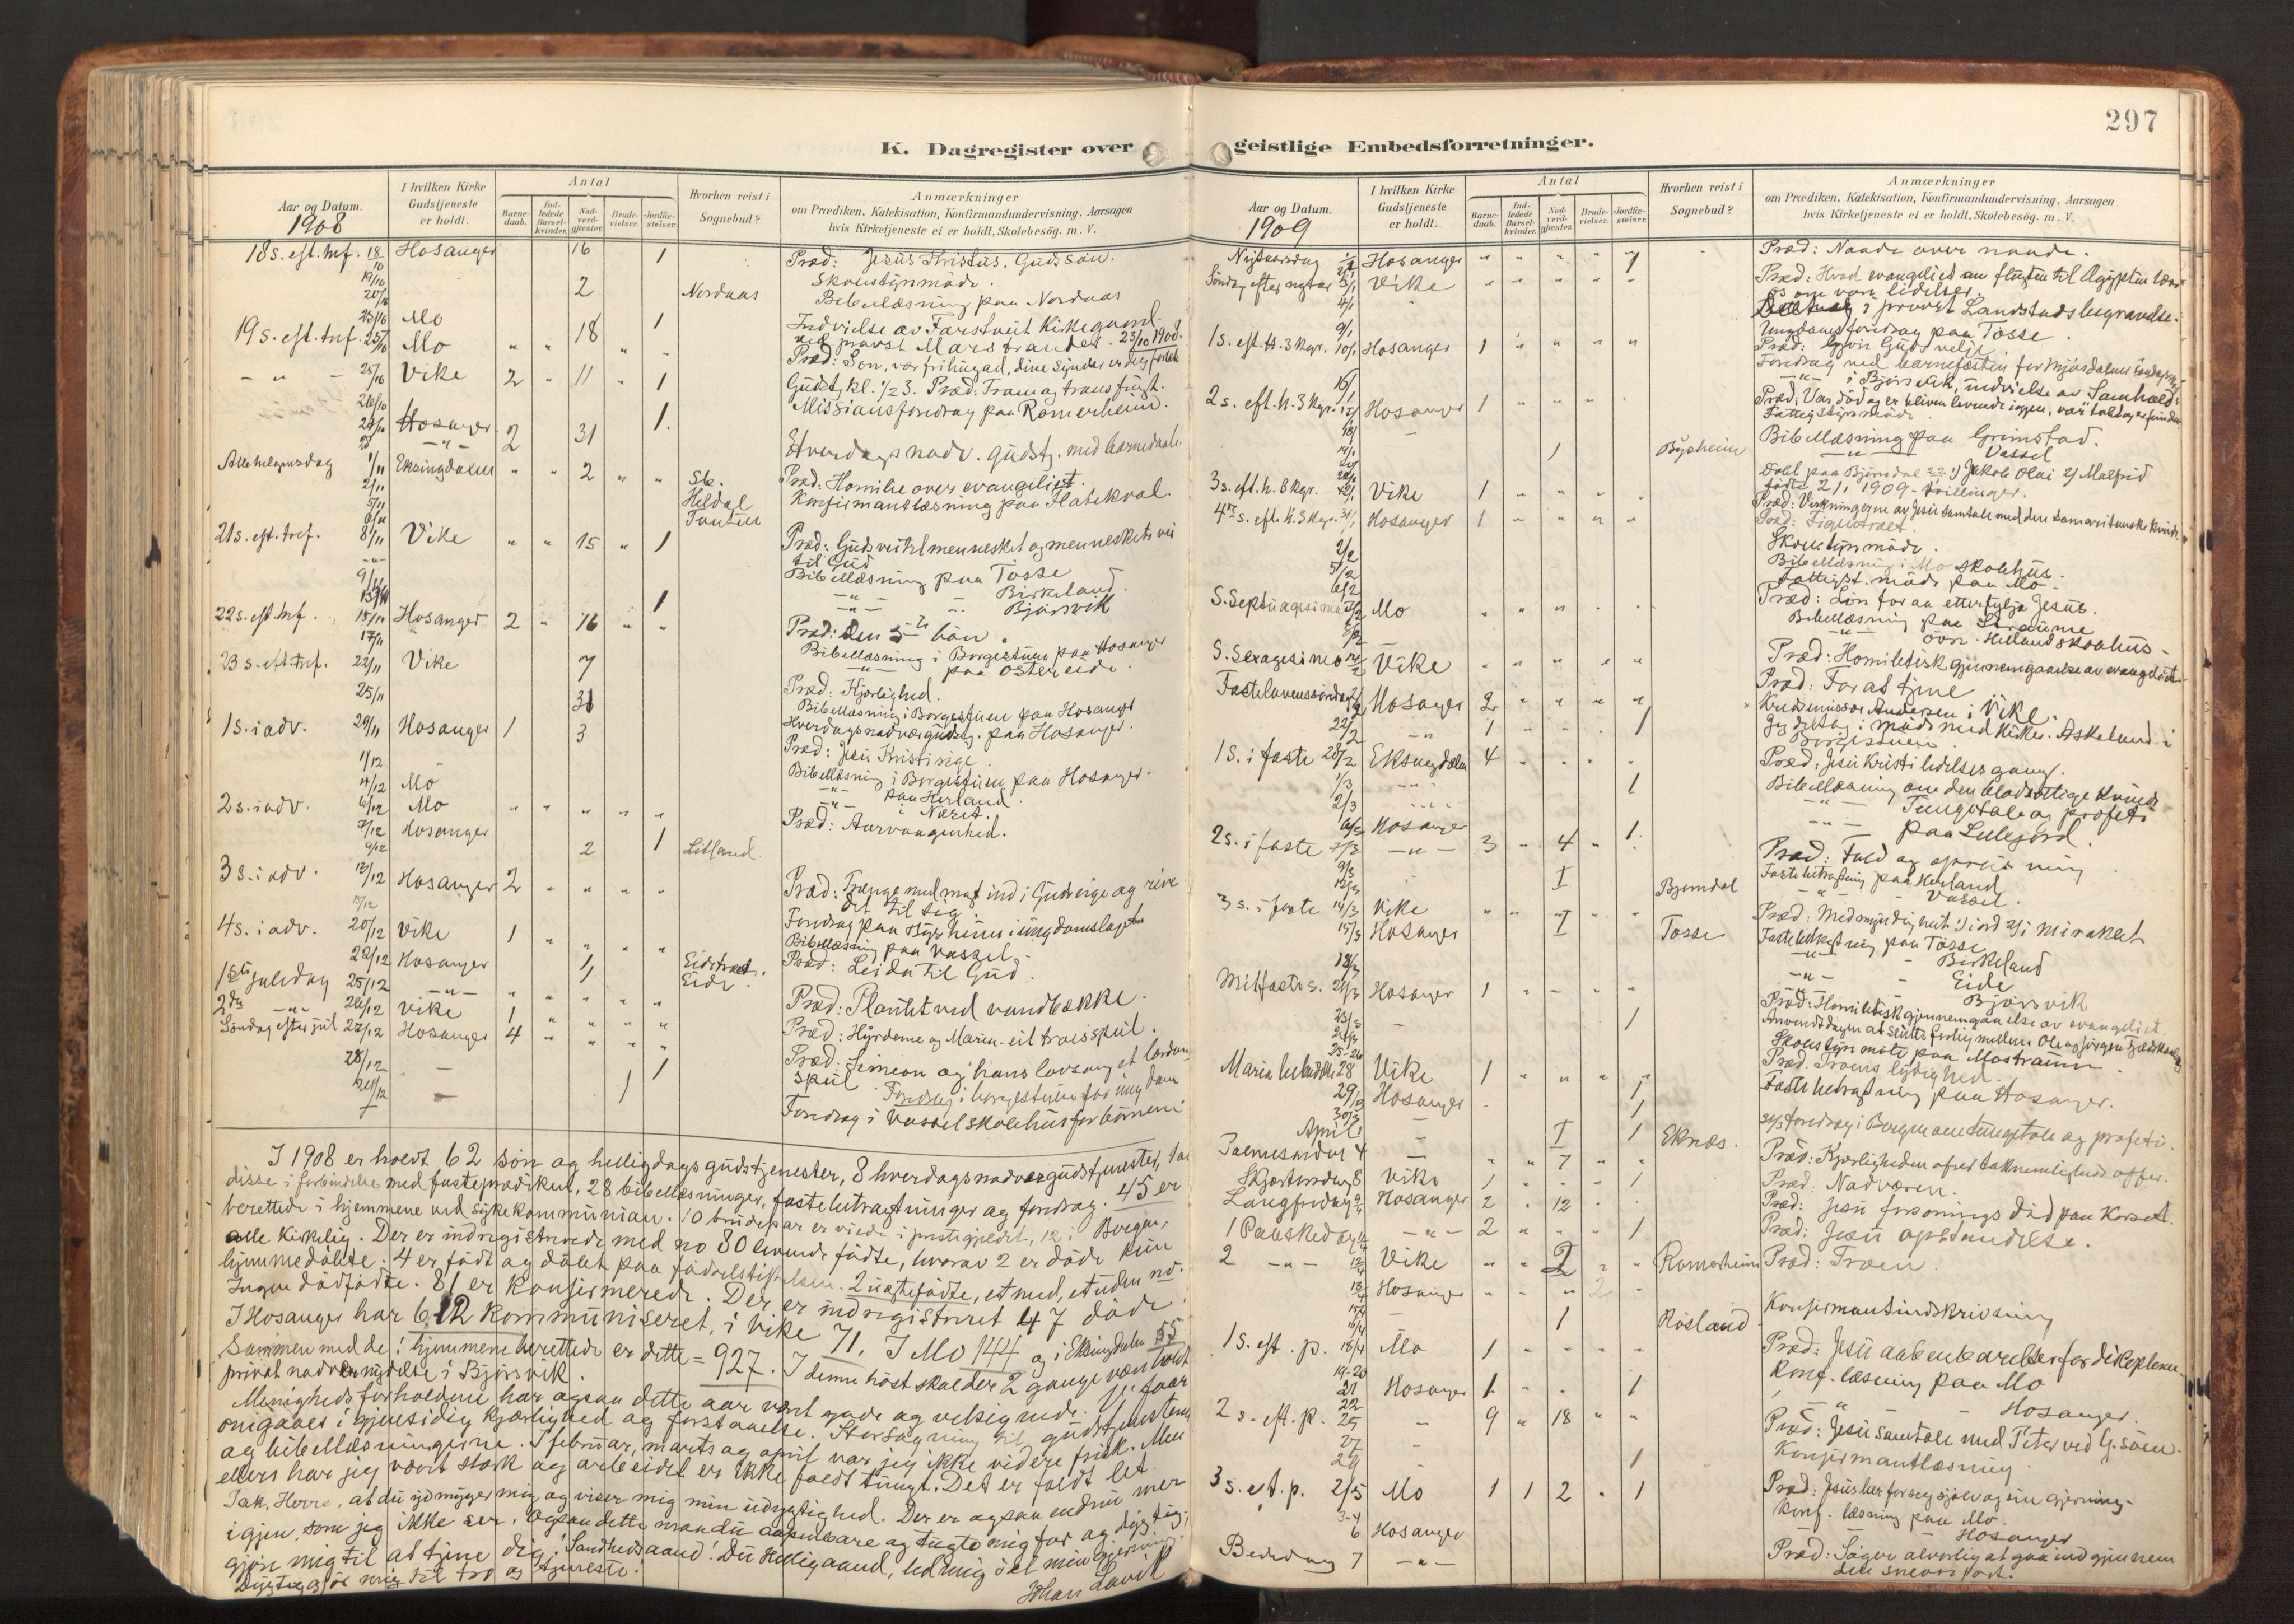 297
K. Dagregister over
geistlige Embedsforretninger.
Aar og Datum.
1908
I hvilken Kirke Gudstjeneste er holdt.
Antal
Barnedaab.
Indledede Barselkvinder.
Nadverdgjæster.
Brudevielser.
Jordfæstelser.
Hvorhen reist i Sognebud?
Anmærkninger
om Prædiken, Katekisation, Konfirmandundervisning, Aarsagen
hvis Kirketjeneste ei er holdt, Skolebesög. m. V.
18 s. eft. tref. 18/10 Hosanger 16 1 Præd: Jesus Kristus, Guds søn.
19/10 Skolestyrsmöde.
20/10 2 Nordaas Bibellæsning paa Nordaas
23/10 Mo 1 Indvielse av Farstveit Kirkegaard
ved provst Marstrander. 23/10 1908.
19 s. eft. tref. 25/10 Mo " " 18 " " Præd: Son, var frihugad, dine synder er deg forlatt
- " - 25/10 Vike 2 " 11 " 1 Gudstj. kl. 1/2 3. Præd. Fram og trans frygt.
26/10 Missionsforedrag paa Romerheim.
Hosanger 2 31 1.
- " - Hverdags nadv. gudstj. med barnedaab.
Allehelgensdag 1/11 Eksingdalen " " 2 " " Præd. Homilie over evangeliet.
2/11 Konfirmantlæsning paa Flatekval.
5/11 Heldal
21 s. eft. tref. 8/11 Vike " " 15 " 1 Præd: Guds vei til mennesket og menneskets vei
til Gud
9/11 Bibellæsning paa Tosse
- " - - Birkeland
- " - Bjørsvik
22 s. eft. tref. 15/11 Hosanger 2 " 16 " " Præd: Den 5te bön.
17/11 Bibellæsning i Borgestuen paa Hosanger
- " - paa Ostereide.
23 s. eft. tref. 22/11 Vike 7 Præd: Kjærlighed.
Bibellæsning i Borgestuen paa Hosanger
25/11 31 Hverdagsnadvergudstj. paa Hosanger.
1 s. i adv. 29/11 Hosanger 1 3 Præd: Jesu Kristi rige.
1/12 Bibellæsning i Borgestuen paa Hosanger.
4/12 Mo - " - paa Herland.
- " - i Næret.
2 s. i adv. 6/12 Mo " " " " " Præd: Aarvaagenhed.
7/12 Hosanger 1
9/12 2
3 s. i adv. 13/12 Hosanger 2 " " " " Præd: Trænge med magt ind i Guds rige og rive
det til sig.
Bibellæsning paa Vassel.
4 s. i adv. 20/12 Vike 1 " " " " Præd: Leida til Gud.
22/12 Hosanger 1
1ste juledag 25/12 - " - " " " " " Præd: Plantet ved vandbække.
2den - " - 26/12 Vike 1 " " " " Præd: Hyrderne og Maria - eit truesspeil.
Søndag efter jul 27/12 Hosanger 4 " " " " Præd: Simeon og hans lovsang et
speil. Foredrag i borgestuen for ungdom
28/12 - 1
- 1 Foredrag i Vassel skolehus for börnene
I 1908 er holdt 62 søn og helligdags gudstjenester, 8 hverdagsnadvergudstjenester,
disse i forbindelse med fasteprædiken, 28 bibellæsninger, fastebetragtninger og foredrag. 45 er
berettede i hjemmene ved sykekommunion. 10 brudepar er viede i prestegjeldet, 12 i Bergen,
alle kirkelig. Der er indregistrerede med no 80 levende fødte, hvorav 2 er døde kun
hjemmedøbte. 4 er født og døbt paa fødselstiftelsen. 2 uægtefødte, et med, et uden no.
Ingen dødfødte. 81 er konfirmerede. Der er indregistreret 47 döde.
I Hosanger har 612 kommuniseret, i Vike 71, I Mo 144 og i Eksingdalen 55
Sammen med de i hjemmene berettede er dette = 927. I denne høst skulde der 2 gange være holdt
privat nadvernydelse i Bjørsvik.
Menighedsforholdene har ogsaa dette aar vært gode og velsignede. Vi faar
omgaaes i gjensidig kjærlighed og forstaaelse. Stor søgning til gudstjenesterne
og bibellæsningerne. I februar, marts og april var jeg ikke videre frisk. Men
ellers har jeg været stærk og arbeidet er ikke faldt tungt. Det er faldt let.
Tak, Herre, at du ydmyger mig og viser mig min udygtighed. Der er ogsaa endnu mer
igjen, som jeg ikke ser. Ogsaa dette maa du aapenbare og tugte mig for og
gjøre mig til at tjene dig! Sandhedsaand! Du Hellig aand, led mig i al min gjerning.
Dygtiggjør mig til tro og tjeneste!
Johan Lavik
Aar og Datum.
1909
I hvilken Kirke Gudstjeneste er holdt.
Antal
Barnedaab.
Indledede Barselkvinder.
Nadverdgjæster.
Brudevielser.
Jordfæstelser.
Hvorhen reist i Sognebud?
Anmærkninger
om Prædiken, Katekisation, Konfirmandundervisning, Aarsagen
hvis Kirketjeneste ei er holdt, Skolebesög. m. V.
Nytaarsdag 1/1 Hosanger " " " " 1 Præd: Naade over naade.
Søndag efter nytaar 3/1 Vike " " " " " Præd: Hvad evangeliet om flugten til Ægypten lærer
os om vore lidelser.
4/1 Deltog i provst Landstads begravelse.
9/1 Ungdomsforedrag paa Tosse.
1 s. eft. H. 3 Kgr. 10/1 Hosanger 1 " " " " Præd: Gjør Guds velje.
- " - i Bjørsvik, indvielse av Samhold.
2 s. eft. h. 3 Kgr. 17/1 Hosanger 1 " " " " Præd: Var död og er bleven levende igjen, var tabt og er funden
Fattigstyrsmöde.
18/1 - Bibellæsning paa Grimstad.
1 Byrheim - " - Vassel
Døbt paa Bjørndal 22/1 1) Jakob Olai 2) Malfrid
fødte 21/1 1909 - tvillinger.
3 s. eft. h. 3 Kgr. Vike 1 " " " " Præd: Virkningerne av Jesu samtale med den samaritanske kvinde.
4de s. eft. H. 3 Kgr. 31/1 Hosanger 1 " " " " Præd: Figentræet.
2/2 Skolestyrsmöde.
5/2 Bibellæsning i Mo skolehus.
6/2 Fattigst. möde paa Mo
S. Septuagesima 7/2 Mo " " " " " Præd: Løn for aa etterfylja Jesus.
Bibellæsning paa Straume
- " - övre Helland skolehus
S. Sexagesima 14/2 Vike " " " " " Præd: Homiletisk gjennemgaaelse av evangeliet.
Fastelavenssöndag 21/2 Hosanger 2 " " " " Præd: For at tjene
22/2 - " - 1 " " " 1 Kredsmissær Andersen i Vike.
Jeg deltog i møde med Kirkes. Askeland i
Borgestuen.
1 S. i faste 28/2 Eksingdalen 4 " " " " Præd: Jesu Kristi lidelses gang.
1/3 - " - 1 Bibellæsning om den blodsottige kvinde
2/3 - " - Tungetale og profeti
Hosanger 1 - " - paa Lulejord.
2 s. i faste 7/3 - " - 3 " 4 " Præd: Fald og opreisning
9/3 I Bjørndal Fastebetragtning paa Herland
12/3 - " - Vassel.
3 s. i faste 14/3 Vike " " " " " Præd: Med myndighet 1) i ord 2) i mirakel
15/3 Hosanger I Tosse Fastebetragtning paa Tosse
- " - Birkeland
18/3 - " - Eide
- " - Bjørsvik
Midfaste s. 21/3 Hosanger 1 " " " " Præd: Homiletisk gjennemgaaelse av evangeliet.
23/3 - 1
24/3 Skolestyrs möte paa Mostraum.
25-26
Maria budskabs 28 Vike 1 " " " " Præd. Troens lydighed.
29/3 Hosanger 1 Fastebetragtning paa Hosanger.
30/3 1
April - I 1 Eknes. foredrag i Bergen om tungetale og profeti.
Palmesøndag 4 - " " 7 " " Præd: Kjærligheden ofrer taknemligheds offer.
Skjærtorsdag 8 Vike 1 " " " 1 Præd: Nadveren.
Langfredag 9/4 Hosanger 2 " 12 " " Præd: Jesu forsonings död paa Korset.
1 Paaskedag 11/4 - " - 2 " " " 1 Præd: Jesu opstandelse.
2 - " - 12/4 Vike " " 2 " " Romerheim Præd: Troen.
13/4 Hosanger " " " 2 "
1 Røsland Konfirmantindskrivning
1 s. eft. p. 18/4 Mo 1 " " " " Præd: Jesu aabenbarelse for disciplene
19-20 Konf. læsning paa Mo
21 Hosanger 1 " " 1
22 - " - Hosanger.
2 s. eft. p. 25 - 9 " 18 " " Præd: Jesu samtale med Peter ved G. søen.
27 - Konfirmantlæsning
29 - 1
3 s. eft. p. 2/5 Mo 1 1 2 " 1 Præd: Jesus ber for seg sjølv og sin gjerning.
3-4 Konf. læsning paa Mo.
6 Hosanger - Hosanger
Bededag 7 - " - Præd: Søger alvorlig at gaa ind gjennem
den snevre port.